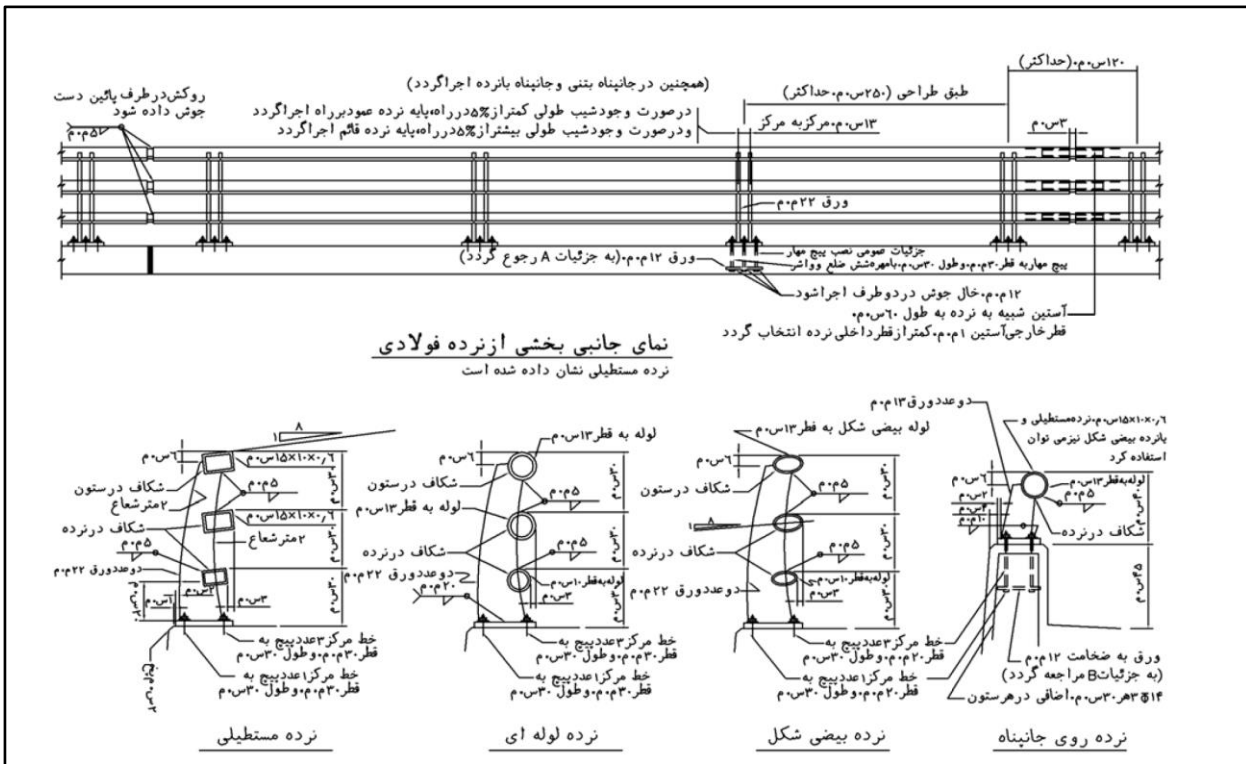 ۱۲۰س.م.(حداکثر)
(همچنین درجانپناه بتنی وجانپناه بانرده اجراگردد)
طبق طراحی (۲۵۰س.م.حداکثر)
روکش درطرف پائین دست
جوش داده شود
درصورت وجودشیب طولی کمتراز۵%درراه،پایه نرده عمودبرراه اجراگردد
ودرصورت وجودشیب طولی بیشتراز۵%درراه،پایه نرده قائم اجراگردد
۱۳س.م.مرکزبه مرکز
۳س.م
۵م.م
ورق ۲۲م.م
جزئیات عمومی نصب پیچ مهار
پیچ مهاربه قطر۳۰م.م.وطول ۳۰س.م.بامهره‌شش ضلع وواشر
ورق ۱۲م.م.(به جزئیات A رجوع گردد)
۱۲م.م.خال جوش دردوطرف اجراشود
آستین شبیه به نرده به طول ۶۰س.م.
قطرخارجی‌آستین ۱م.م.کمترازقطرداخلی‌نرده انتخاب گردد
نمای جانبی بخشی ازنرده فولادی
نرده مستطیلی نشان داده شده است
۸
۱
۶س.م
۱۵×۱۰×۰٫۶س.م
شکاف درستون
۵م.م
۲مترشعاع
۱۵×۱۰×۰٫۶س.م
شکاف درنرده
۲مترشعاع
۵م.م
دوعددورق ۲۲م.م
۳س.م
۳۰س.م
۳۰س.م
خط مرکز۳عددپیچ به
قطر۳۰م.م.وطول ۳۰س.م
خط مرکز۱عددپیچ به
قطر۳۰م.م.وطول ۳۰س.م
نرده مستطیلی
لوله به قطر۱۳س.م
۶س.م
شکاف درستون
۵م.م
لوله به قطر۱۳س.م
شکاف درنرده
۵م.م
دوعددورق ۲۲م.م
لوله‌به‌قطر۱۰س.م
۲۰م.م
۳س.م
۳۰س.م
۳۰س.م
۳۰س.م
خط مرکز۳عددپیچ به
قطر۳۰م.م.وطول ۳۰س.م
خط مرکز۱عددپیچ به
قطر۳۰م.م.وطول ۳۰س.م
نرده لوله ای
لوله بیضی شکل به قطر۱۳س.م
۶س.م
شکاف درستون
۵م.م
۸
۱
شکاف درنرده
۵م.م
لوله‌به‌قطر۱۰س.م
دوعددورق ۲۲م.م
۳س.م
۳۰س.م
۳۰س.م
۳۰س.م
خط مرکز۳عددپیچ به
قطر۲۰م.م.وطول ۳۰س.م
خط مرکز۱عددپیچ به
قطر۲۰م.م.وطول ۳۰س.م
نرده بیضی شکل
دوعددورق۱۳م.م
۱۵×۱۰×۰٫۶س.م.نرده‌مستطیلی و
یانرده بیضی شکل نیزمی توان
استفاده کرد
۶س.م
لوله‌به‌قطر۱۳س.م
۵م.م
۲س.م
۱۰م.م
شکاف درنرده
۴۰س.م
۴۵س.م
ورق به ضخامت ۱۲م.م
(به جزئیاتBمراجعه گردد)
۳Φ۱۴هر۳۰س.م.اضافی درهرستون
نرده روی جانپناه